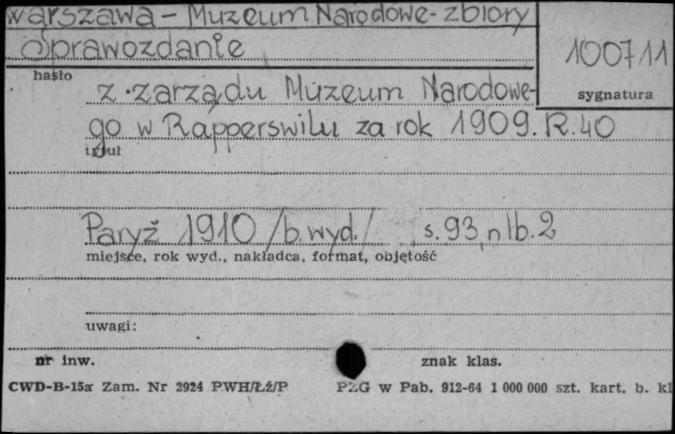 Warszawa - Muzeum Narodowe - zbiory
Sprawozdanie
100711
hasło
sygnatura
z zarządu Muzeum Narodowe-
go w Rapperswilu za rok 1909. R.40
tytuł
Paryż 1910 /b.wyd./ , s. 93, nlb. 2
miejsce, rok wyd., nakładca, format, objętość
uwagi:
nr inw.
znak klas.
CWD-B-15a Zam. Nr 2924 PWH/Łź/P
PZG w Pab. 912-64 1 000 000 szt. kart. b. kl